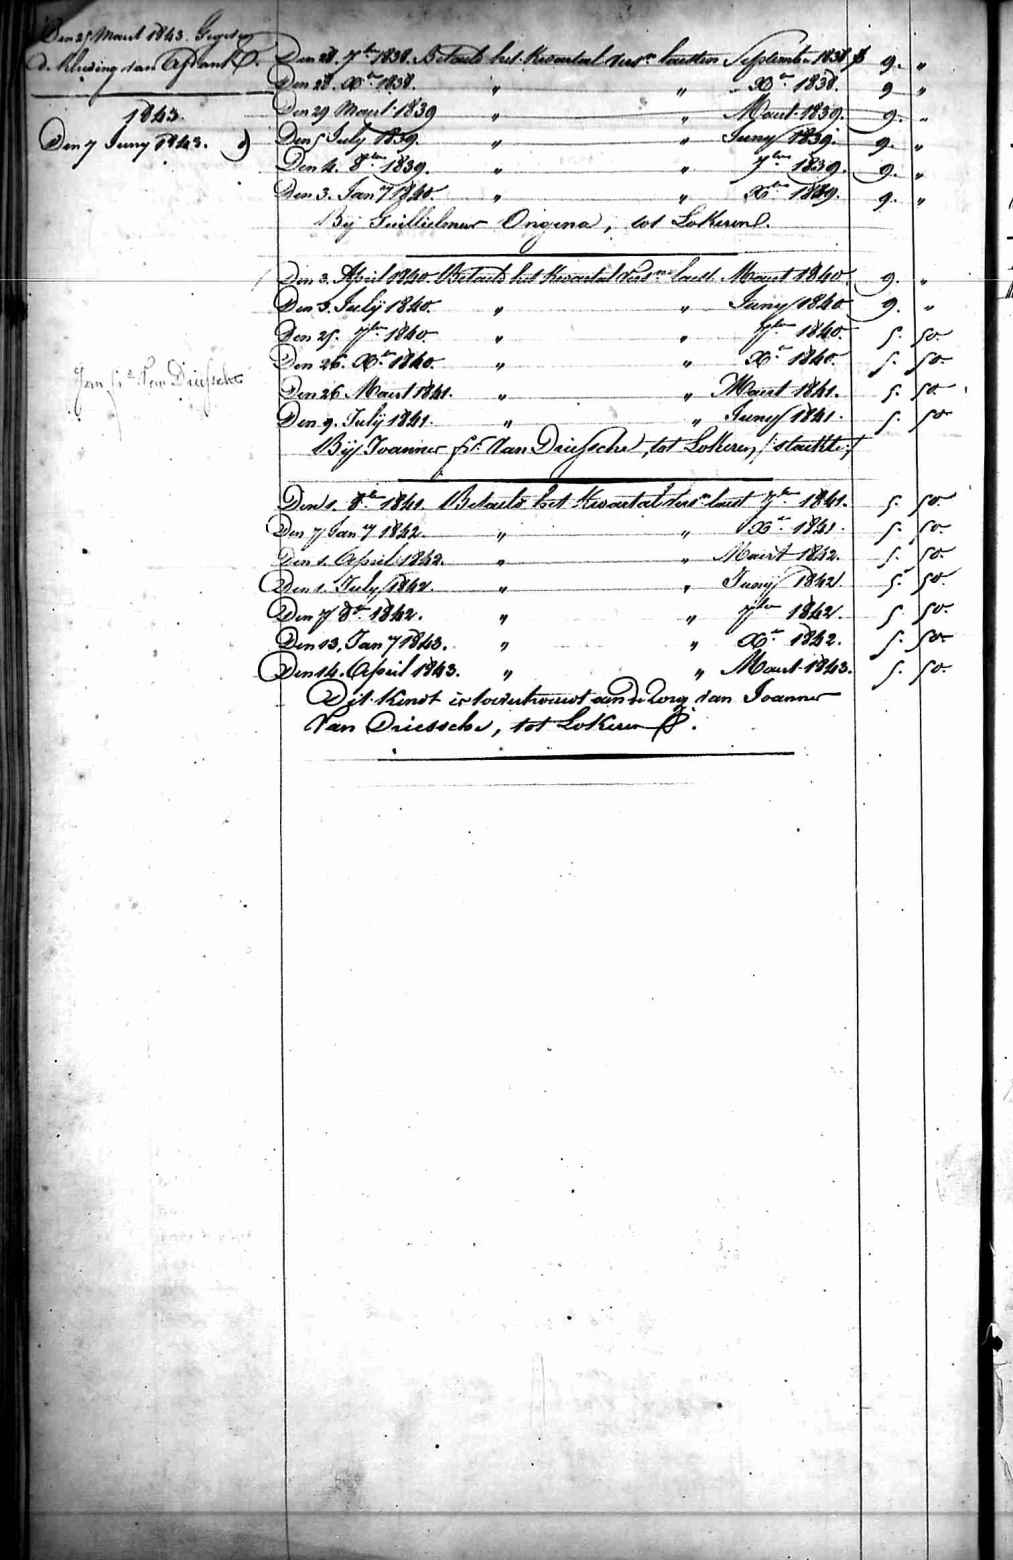 Den 25 Maert 1843. Gegeven
de kleeding van Afdank
1843.
Den 7 Juny 1843.
Den 28. 7br 1838. Betaeld het Kwartael versn laetsten September 1838 9. "
Den 28. Xbr 1838. " " Xbr 1838. 9 "
Den 29 Maert 1839 " " Maert 1839. 9. "
Den 5 July 1839. " " Juny 1839. 9. "
Den 4. 8br 1839. " " 7ber 1839. 9. "
Den 3. Jany 1840. " " Xber 1839. 9. "
Bij Guillielmus Ongena, tot Lokeren.
Den 3. April 1840. Betaeld het Kwartael versn laest. Maert 1840. 9. "
Den 3. July 1840. " " Juny 1840 9. "
Den 25. 7ber 1840. " " 7ber 1840. 5. 50.
Den 26. Xbr 1840. " " Xbr 1840. 5. 50.
Jan Fs Van Driessche
Den 26 Maert 1841. " " Maert 1841. 5. 50.
Den 9. July 1841. " " Juny 1841. 5. 50
Bij Joannes fs Van Driessche, tot Lokeren, /:staekte:/
Den 1. 8br 1841. Betaeld het Kwartael versn laest 7ber 1841. 5. 50.
Den 7 Jany 1842. " " Xbr 1841. 5. 50.
Den 1. April 1842. " " Maert 1842. 5. 50.
Den 1. July 1842 " " Juny 1842. 5. 50.
Den 7 8br 1842. " " 7ber 1842. 5. 50.
Den 13, Jany 1843. " " Xbr 1842. 5. 50.
Den 14. April 1843. " " Maert 1843. 5. 50.
Dit kindt is toevertrouwt aen de zorg van Joannes
Van Driessche, tot Lokeren.